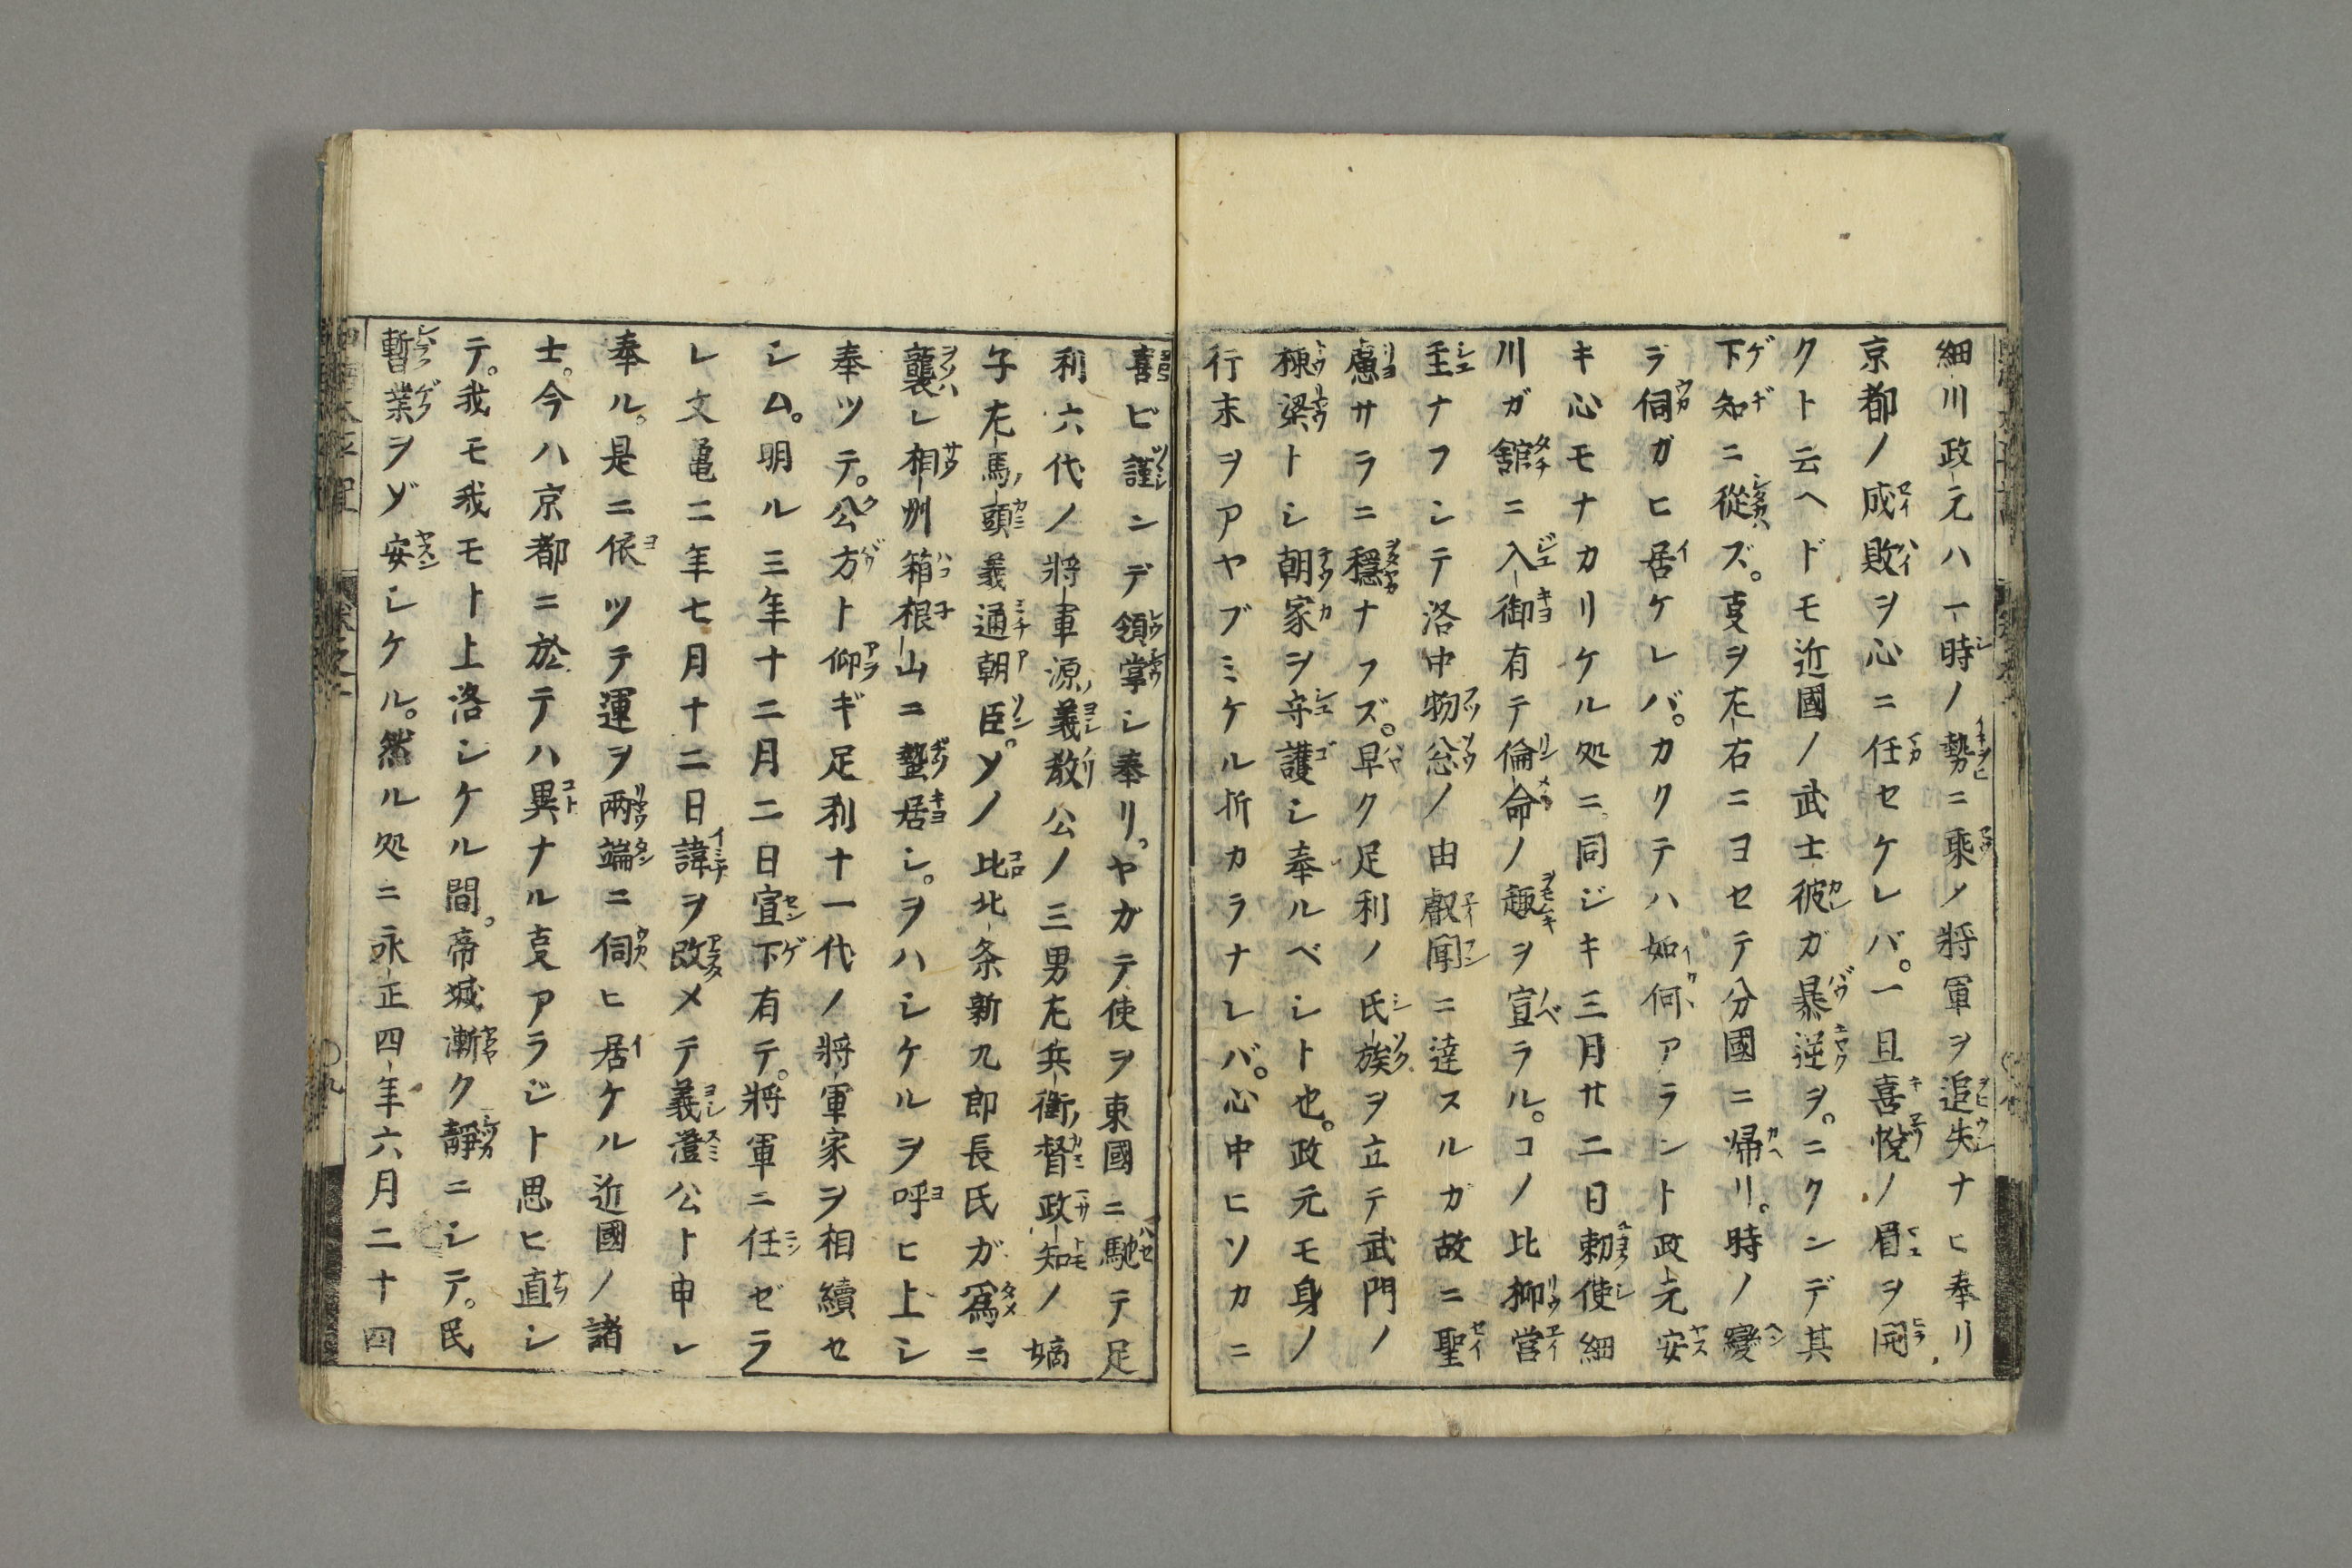 細川政元ハ一時ノ勢ニ乘ノ將軍ヲ追失ナヒ奉リ
京都ノ成敗ヲ心ニ任セケレバ。一旦喜悅ノ眉ヲ開
クト云ヘドモ近國ノ武士彼ガ暴逆ヲ。ニクンデ其
下知ニ從ズ。㕝ヲ左右ニヨセテ分國ニ帰リ。時ノ變
ヲ伺ガヒ居ケレバ。カクテハ如何アラント政元安
キ心モナカリケル処ニ同ジキ三月廿二日勅使細
川ガ舘ニ入御有テ倫命ノ趣ヲ宣ラル。コノ比柳営
主ナフシテ洛中物忩ノ由叡聞ニ達スルガ故ニ聖
慮サラニ穩ナラズ。早ク足利ノ氏族ヲ立テ武門ノ
棟梁トシ朝家ヲ守護シ奉ルベシト也。政元モ身ノ
行末ヲアヤブミケル折カラナレバ。心中ヒソカニ
喜ビ謹ンデ領掌シ奉リ。ヤガテ使ヲ東國ニ馳テ足
利六代ノ將軍源義教公ノ三男左兵衛督政知ノ嫡
子左馬頭義通朝臣。ソノ比北条新九郎長氏ガ爲ニ
襲レ相州箱根山ニ蟄居シ。ヲハシケルヲ呼ヒ上シ
奉ツテ。公方ト仰ギ足利十一代ノ將軍家ヲ相續セ
シム。明ル三年十二月二日宣下有テ。將軍ニ任ゼラ
レ文亀二年七月十二日諱ヲ改メテ義澄公ト申レ
奉ル。是ニ依ツテ運ヲ兩端ニ伺ヒ居ケル近國ノ諸
士。今ハ京都ニ於テハ異ナル㕝アラジト思ヒ直シ
テ。我モ我モト上洛シケル間。帝城漸ク靜ニシテ。民
暫業ヲゾ安シケル。然ル処ニ永正四年六月二十四